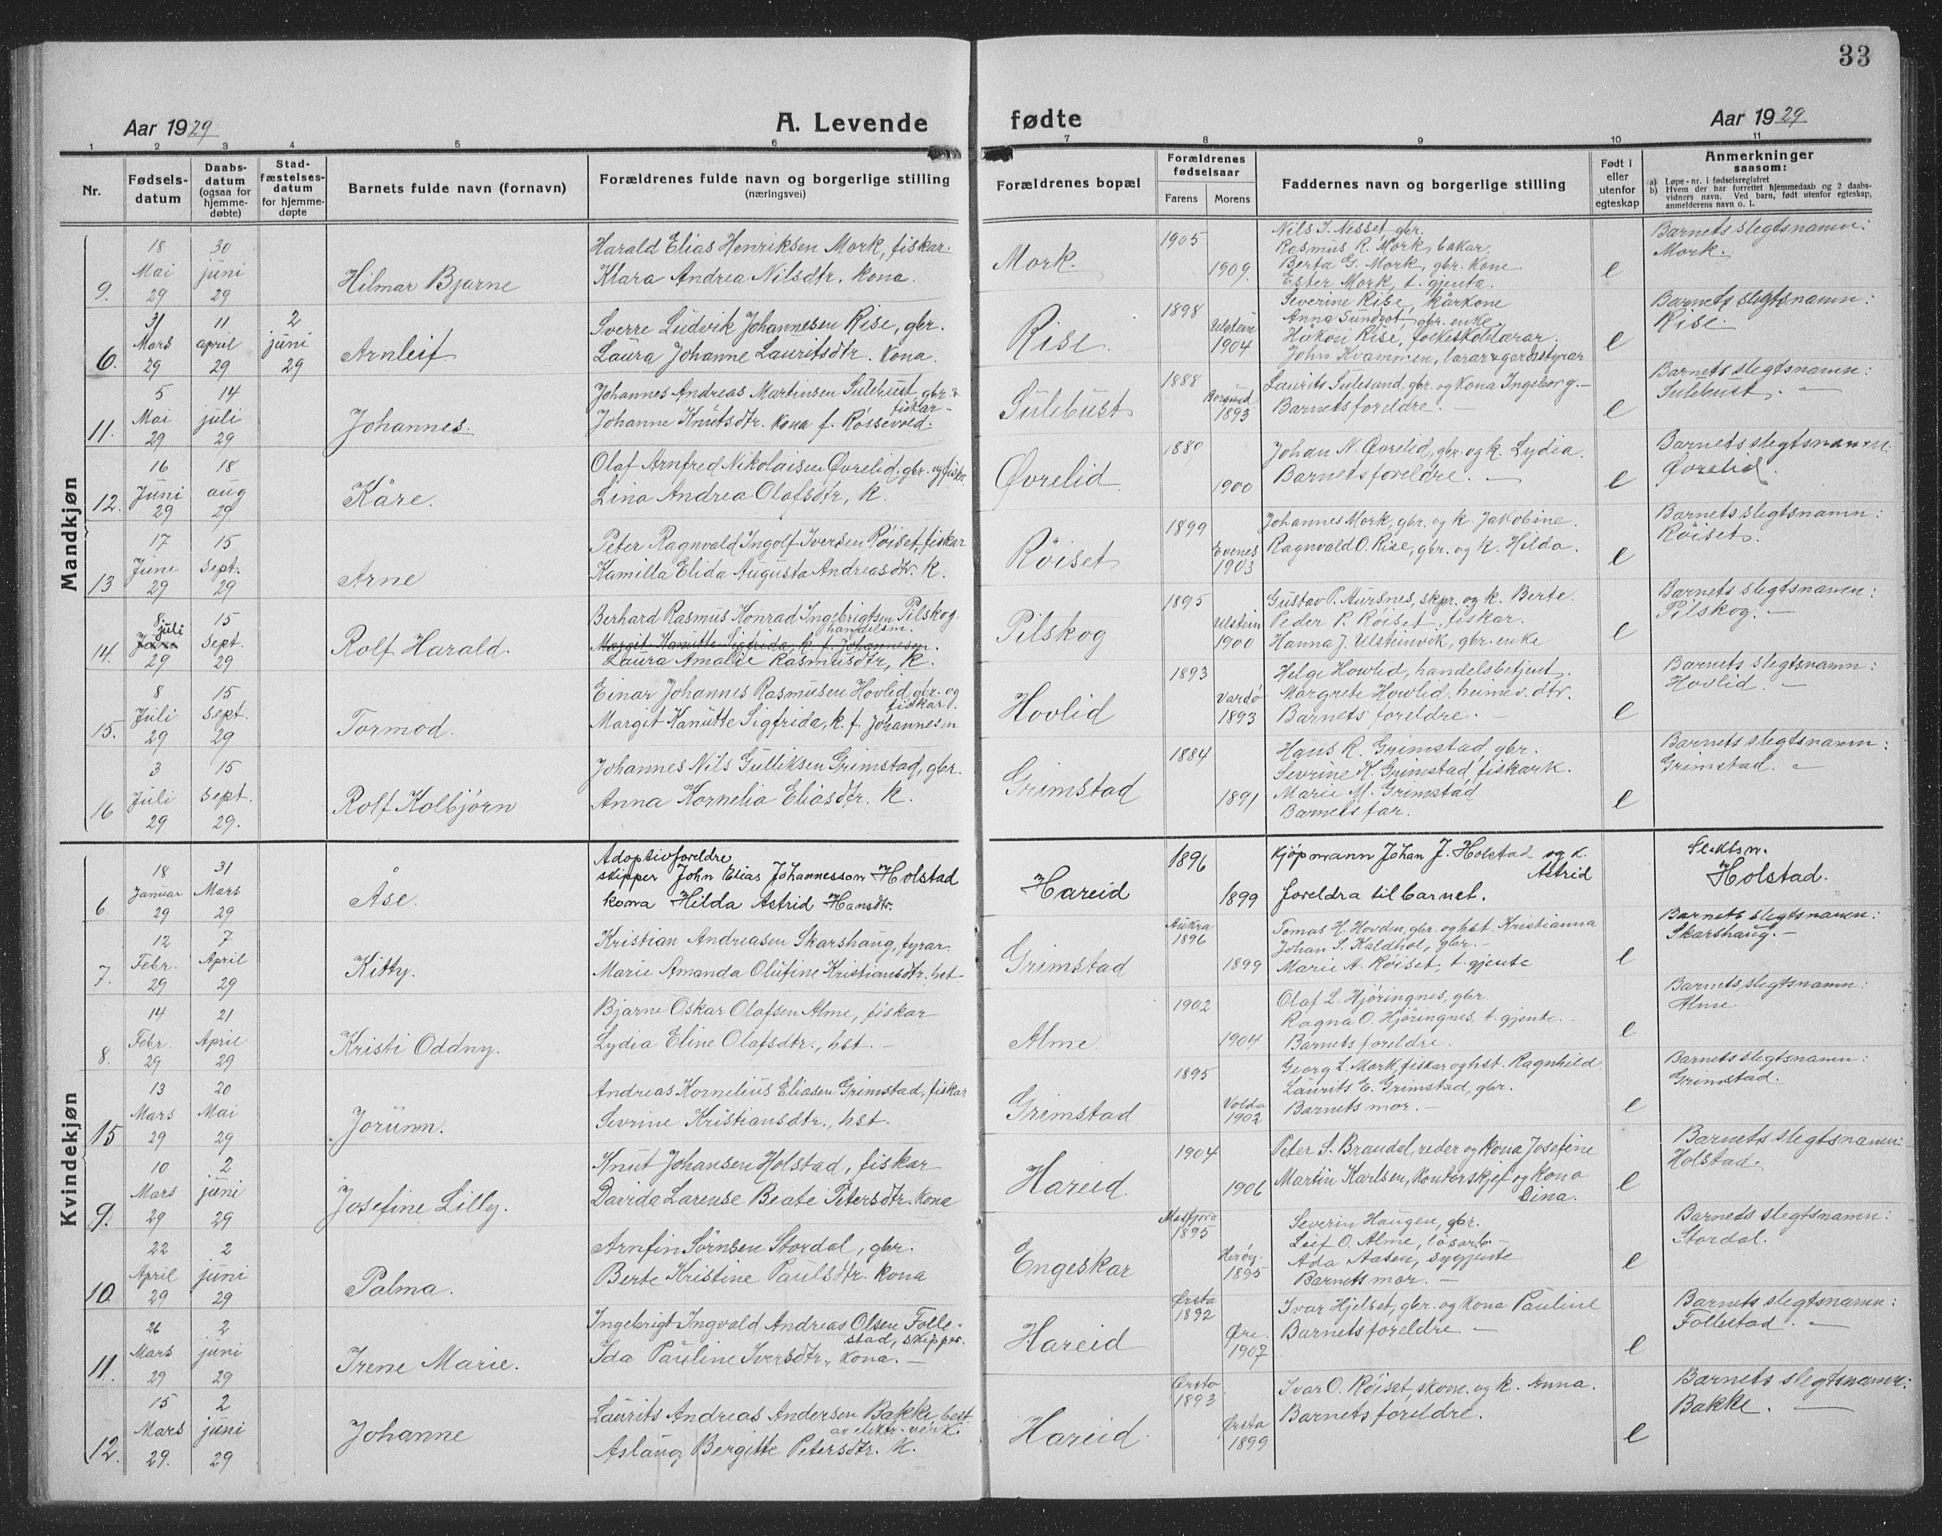 33
Aar 1929 A. Levende fødte Aar 1929
1 2 3 4 5 6 7 8 9 10 11
Nr. Fødselsdatum Daabsdatum (ogsaa for hjemmedøbte) Stadfæstelsesdatum for hjemmedøpte Barnets fulde navn (fornavn) Forældrenes fulde navn og borgerlige stilling (næringsvei) Forældrenes bopæl Forældrenes fødselsaar Farens Morens Faddernes navn og borgerlige stilling Født i eller utenfor egteskap Anmerkninger saasom:
a) Løpe-nr. i fødselsregistret
b) Hvem der har forrettet hjemmedaab og 2 daabsvidners navn. Ved barn, født utenfor egteskap, anmelderens navn o. l.
Mandkjøn
9. 18 Mai 29 30 juni 29 Hilmar Bjarne
Harald Elias Henriksen Mork, fiskar.
Klara Andrea Nilsdtr. kona.
Mork. 1905 1909.
Nils J. Nesset gbr.
Rasmus R. Mork, bakar
Berta G. Mork, gbr. kone
Ester Mork, t. gjenta.
e
Barnets slegtsnamn:
Mork.
6. 31 Mars 29 11 april 29 2 juni 29 Arnleif
Sverre Ludvik Johannesen Rise, gbr.
Laura Johanne Lauritsdtr. kona.
Rise. 1898 Ulstein 1904
Severine Rise, kårkone
Anna Sundgot, gbr. enke
Håkon Rise, folkeskolelærar.
John Kvammen, lærar & gardstyrar
e
Barnets slegtsnamn:
Rise.
11. 5 Mai 29 14 juli 29 Johannes.
Johannes Andreas Martinsen Sulebust, gbr. & fiskar
Johanne Knutsdtr. kona f. Røssevold.
Sulebust 1888 Borgund 1893
Laurits Sulesund, gbr. og kona Ingeborg. —
Barnets foreldre. —
e
Barnets slegtsnamn:
Sulebust. —
12. 16 Juni 29 18 aug 29 Kåre.
Olaf Arnfred Nikolaisen Øvrelid, gbr. og fisker
Lina Andrea Olafsdtr, k.
Øvrelid 1880 1900
Johan N. Øvrelid, gbr. og k. Lydia.
Barnets foreldre. —
e
Barnets slegtsnamn
Øvrelid.
13 17 June 29 15 Sept. 29 Arne
Peter Ragnvald Ingolf Iversen Røiset, fiskar
Kamilla Elida Augusta Andreasdtr. k.
Røiset 1899 Evenes 1903
Johannes Mork, gbr. og k. Jakobine.
Ragnvald O. Rise, gbr. og k. Hilda.
e
Barnets slegtsnamn:
Røiset.
14. 8 juli 29 15 Sept. 29 Rolf Harald.
Berhard Rasmus Konrad Ingebrigtsen Pilskog handelsm.
Margit Hanutte Sigfrida, k. f. Johannesen.
Laura Amalie Rasmusdtr, k.
Pilskog 1895 Ulstein 1900
Gustav P. Aursnes, skpr. og k. Berte.
Peder P. Røiset, fiskar.
Hanna J. Ulsteinvik, gbr. enke
e
Barnets slegtsnamn:
Pilskog. —
15. 8 Juli 29 15 Sept. 29 Tormod.
Einar Johannes Rasmusen Hovlid, gbr. og fiskar.
Margit Kanutte Sigfrida, k. f. Johannesen
Hovlid 1893 Vardø 1893
Helge Hovlid, handelsbetjent.
Margrete Hovlid, heimev. dtr.
Barnets foreldre. —
e
Barnets slegtsnamn:
Hovlid. —
16 3 Juli 29 15 Sept. 29. Rolf Kolbjørn
Johannes Nils Gulliksen Grimstad, gbr.
Anna Kornelia Eliasdtr. k.
Grimstad 1884 1891
Hans R. Grimstad, gbr.
Sevrine K. Grimstad, fiskark.
Marie M. Grimstad
Barnets far.
e
Barnets slegtsnamn:
Grimstad. —
Kvindekjøn
6. 18 Januar 29 31 Mars 29 Åse.
Adoptivforeldre
skipper John Elias Johannesson Holstad
kona Hilda Astrid Hansdtr.
Hareid 1896 1899
kjøpmann Johan J. Holstad og k. Astrid
foreldra til barnet.
Slektsn.
Holstad.
7. 12 Febr. 29 7 April 29 Kitty.
Kristian Andreasen Skarshaug, fyrar.
Marie Amanda Olufine Kristiansdtr. hst.
Grimstad Aukra 1896 1899
Tomas H. Hovden, gbr. og hst. Kristianna
Johan S. Kaldhol, gbr. —
Marie A. Røiset, t. gjente
e
Barnets slegtsnamn:
Skarshaug. —
8. 14 Febr. 29 21 April 29 Kristi Oddny.
Bjarne Oskar Olafsen Alme, fiskar
Lydia Eline Olafsdtr., hst. —
Alme 1902 1904
Olaf L. Hjøringnes, gbr.
Ragna O. Hjøringnes, t. gjente.
Barnets foreldre.
e
Barnets slegtsnamn:
Alme.
15 13 Mars 29 20 Mai 29 Jørunn.
Andreas Kornelius Eliasen Grimstad, fiskar
Sevrine Kristiansdtr., hst.
Grimstad 1895 Volda 1902
Georg L. Mork, fiskar og hst. Ragnhild
Laurits E. Grimstad, gbr.
Barnets mor. —
e
Barnets slegtsnamn:
Grimstad.
9. 10 Mars 29 2 juni 29 Josefine Lilly.
Knut Johansen Holstad, fiskar
Davida Larense Beate Petersdtr. kona
Hareid. 1904 1906
Peter S. Brandal, reder og kona Josefine
Martin Karlsen, kontorskjef og kona Dina.
e
Barnets slegtsnamn:
Holstad.
10. 22 April 29 2 juni 29 Palma.
Arnfin Sørnsen Stordal, gbr.
Berte Kristine Paulsdtr. kona
Engeskar 1895 Herøy 1895
Severin Haugen, gbr.
Leif O. Alme, løsarb —
Ada Aasen, sygjente
Barnets mor. —
e
Barnets slegtsnamn:
Stordal.
11. 26 Mars 29 2 juni 29 Irene Marie.
Ingebrigt Ingvald Andreas Olsen Follestad, skipper.
Ida Pauline Iversdtr., kona. —
Hareid Ørsta 1892 Øre 1907
Ivar Hjelset, gbr. og kona Pauline
Barnets foreldre —
e
Barnets slegtsnamn:
Follestad. —
12. 15 Mars 29. 2 juni 29 Johanne
Laurits Andreas Andersen Bakke, best. av elektr. verk.
Aslaug Bergitte Petersdtr. K.
Hareid. Ørsta 1893 Ørsta 1899
Ivar O. Røiset, skom. og k. Anna.
Barnets foreldre.
e
Barnets slegtsnamn:
Bakke. —